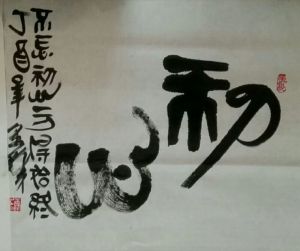 初心
不忘初心方得始终
丁酉年